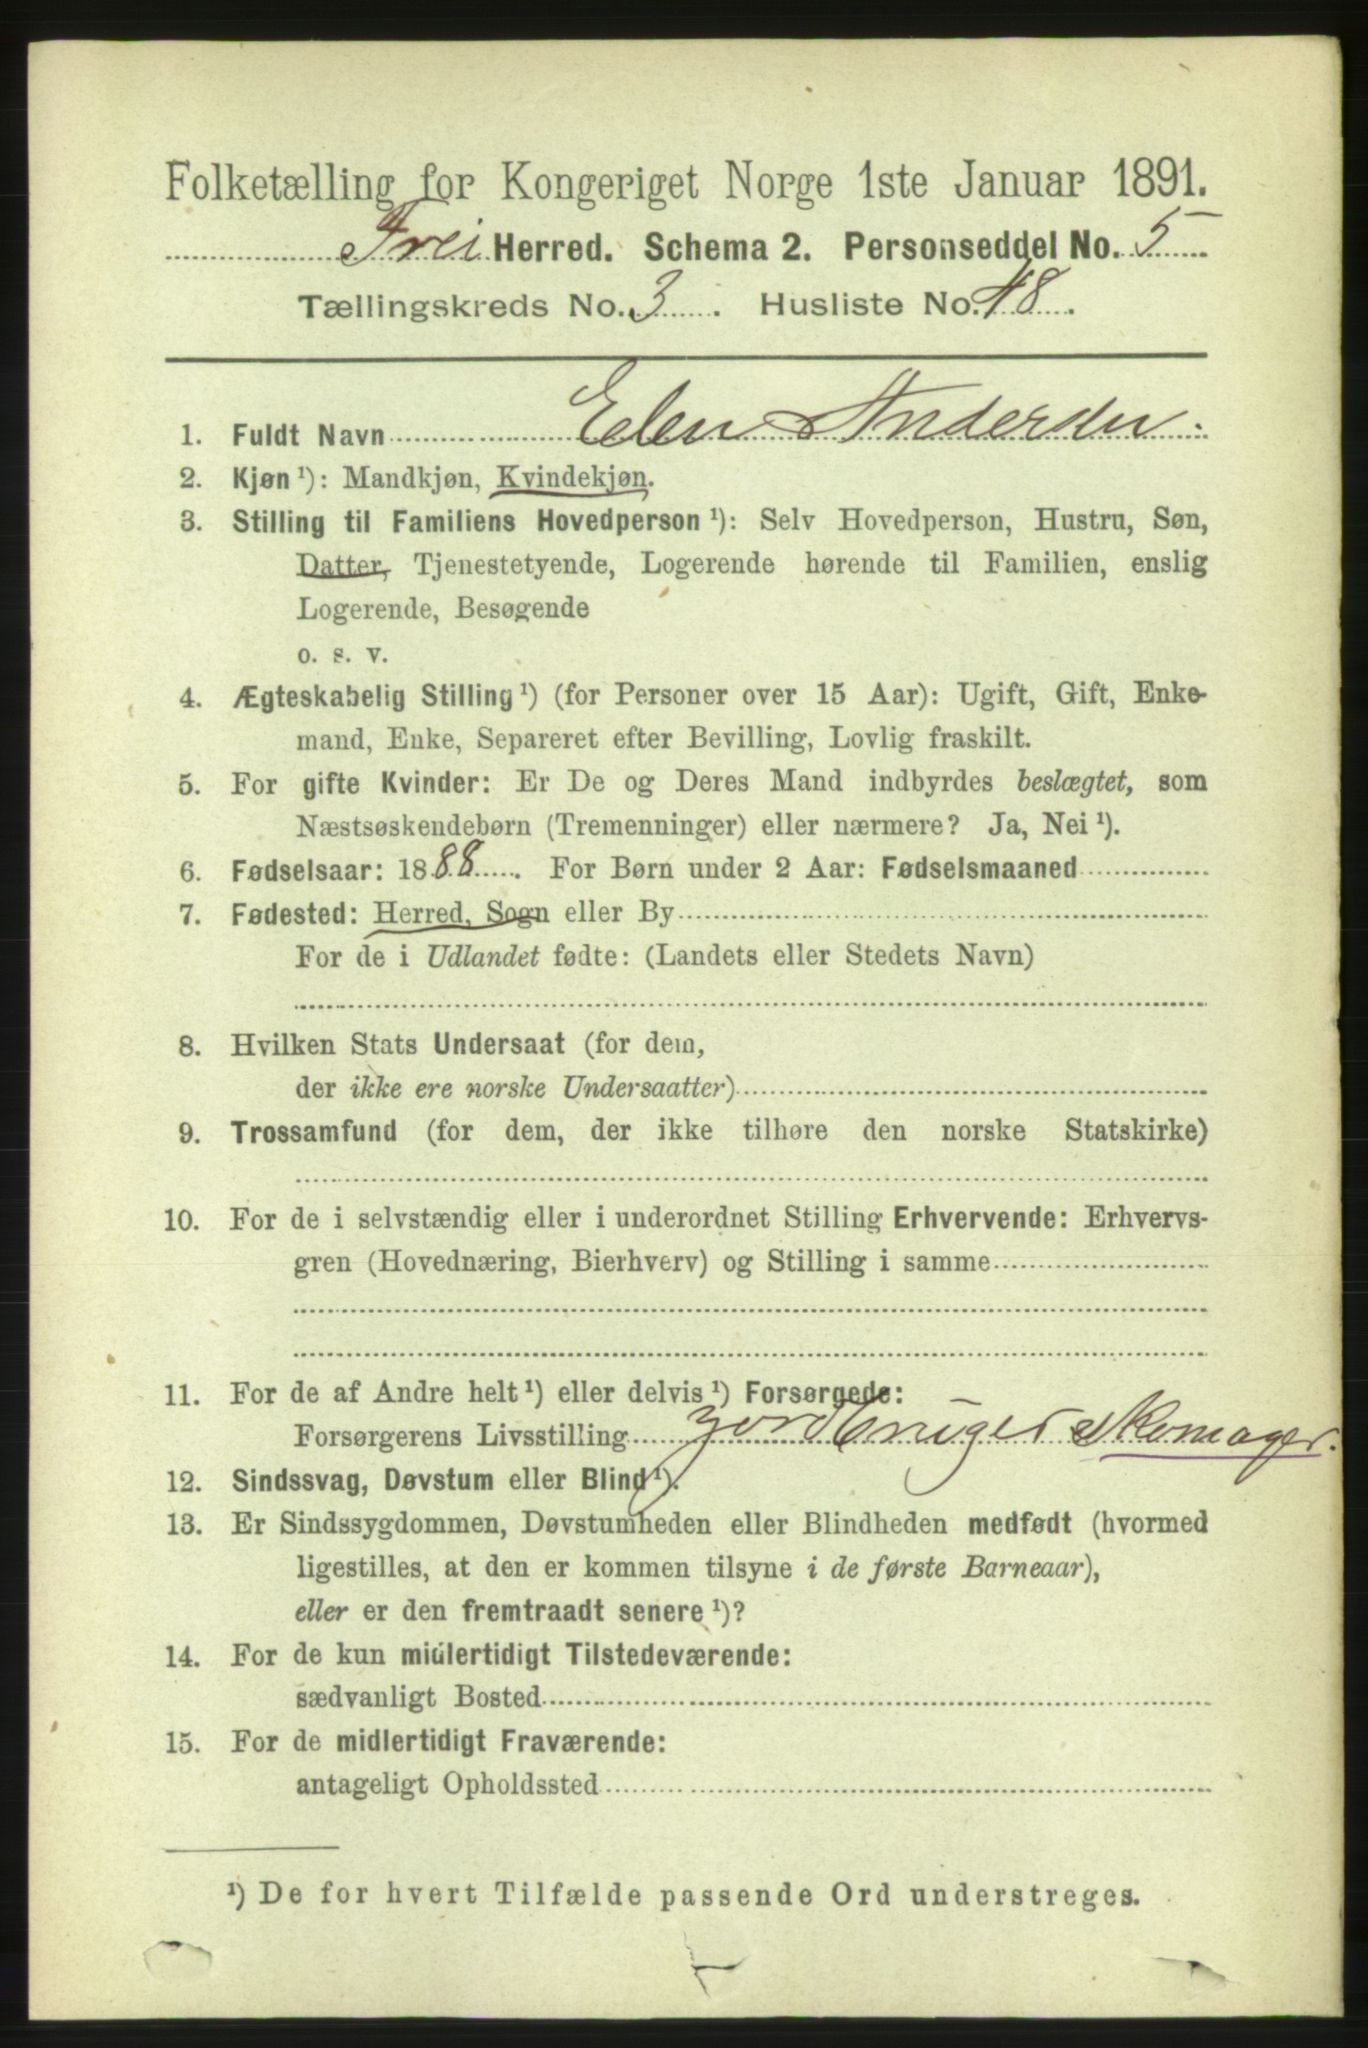 Folketælling for Kongeriget Norge 1ste Januar 1891.
Frei Herred. Schema 2. Personseddel No. 5
Tællingskreds No. 3. Husliste No. 48.
1. Fuldt Navn Elen Andersdr.
2. Kjøn ¹): Mandkjøn, Kvindekjøn.
3. Stilling til Familiens Hovedperson ¹): Selv Hovedperson, Hustru, Søn,
Datter, Tjenestetyende, Logerende hørende til Familien, enslig
Logerende, Besøgende
o. s. v.
4. Ægteskabelig Stilling ¹) (for Personer over 15 Aar): Ugift, Gift, Enke-
mand, Enke, Separeret efter Bevilling, Lovlig fraskilt.
5. For gifte Kvinder: Er De og Deres Mand indbyrdes beslægtet, som
Næstsøskendebørn (Tremenninger) eller nærmere? Ja, Nei ¹).
6. Fødselsaar: 1888. For Børn under 2 Aar: Fødselsmaaned
7. Fødested: Herred, Sogn eller By
For de i Udlandet fødte: (Landets eller Stedets Navn)
8. Hvilken Stats Undersaat (for dem,
der ikke ere norske Undersaatter)
9. Trossamfund (for dem, der ikke tilhøre den norske Statskirke)
10. For de i selvstændig eller i underordnet Stilling Erhvervende: Erhvervs-
gren (Hovednæring, Bierhverv) og Stilling i samme
11. For de af Andre helt ¹) eller delvis ¹) Forsørgede:
Forsørgerens Livsstilling Jordbruger Skomager.
12. Sindssvag, Døvstum eller Blind ¹).
13. Er Sindssygdommen, Døvstumheden eller Blindheden medfødt (hvormed
ligestilles, at den er kommen tilsyne i de første Barneaar),
eller er den fremtraadt senere ¹)?
14. For de kun midlertidigt Tilstedeværende:
sædvanligt Bosted
15. For de midlertidigt Fraværende:
antageligt Opholdssted
¹) De for hvert Tilfælde passende Ord understreges.